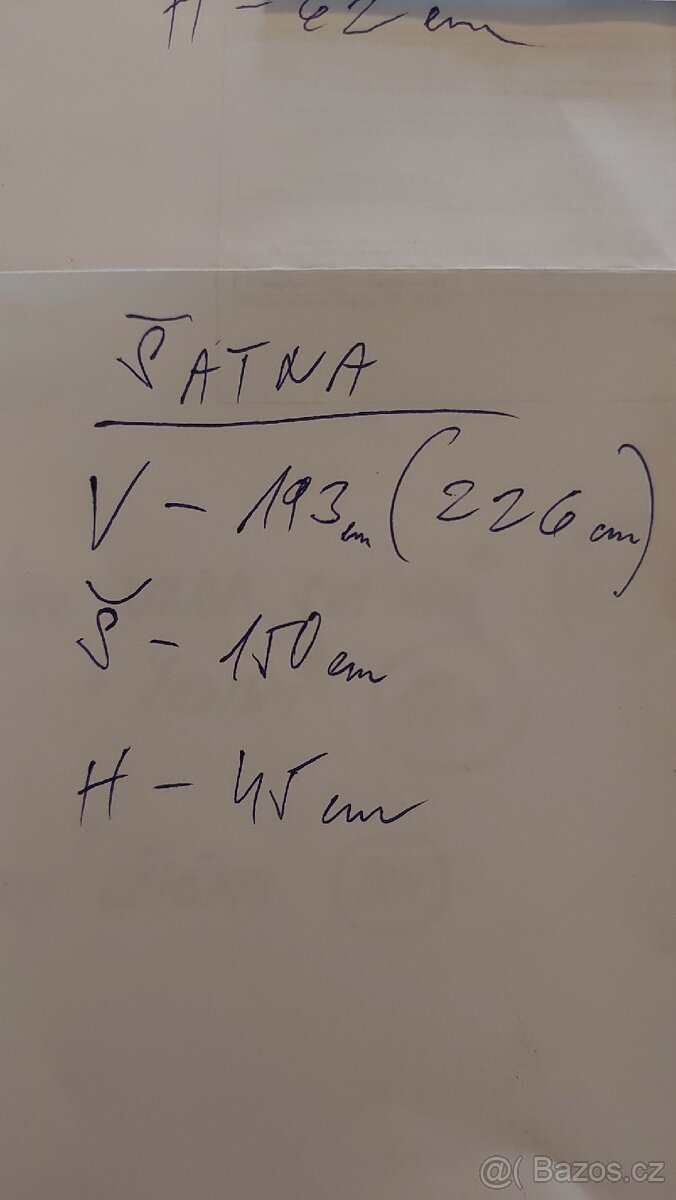 H - 42 cm
ŠATNA
V - 193 cm (226 cm)
Š - 150 cm
H - 45 cm
@( Bazos.cz